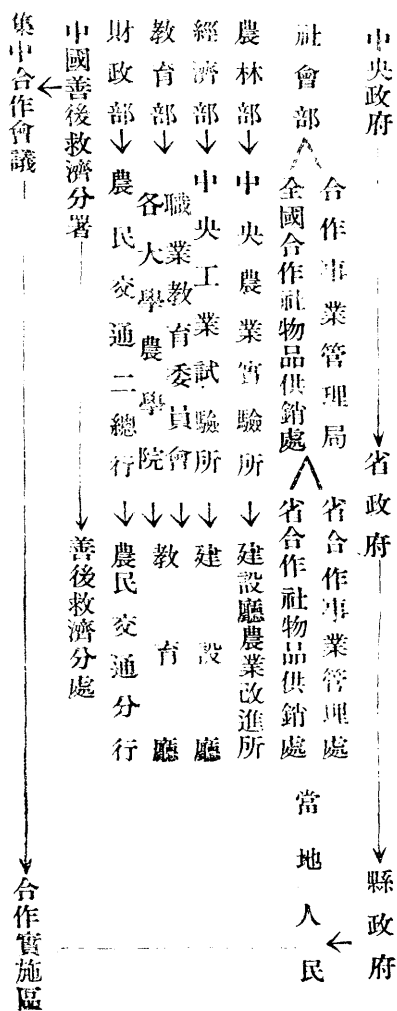 中央政府→省政府→縣政府
社會部 合作事業管理局 省合作事業管理處 當地人民
全國合作社物品供銷處 省合作社物品供銷處
農林部→中央農業實驗所→建設廳農業改進所
經濟部→中央工業試驗所→建設廳
教育部→職業教育委員會→教育廳
各大學農學院→
財政部→農民交通二總行→農民交通分行
中國善後救濟分署→善後救濟分處
集中合作會議→合作實施區